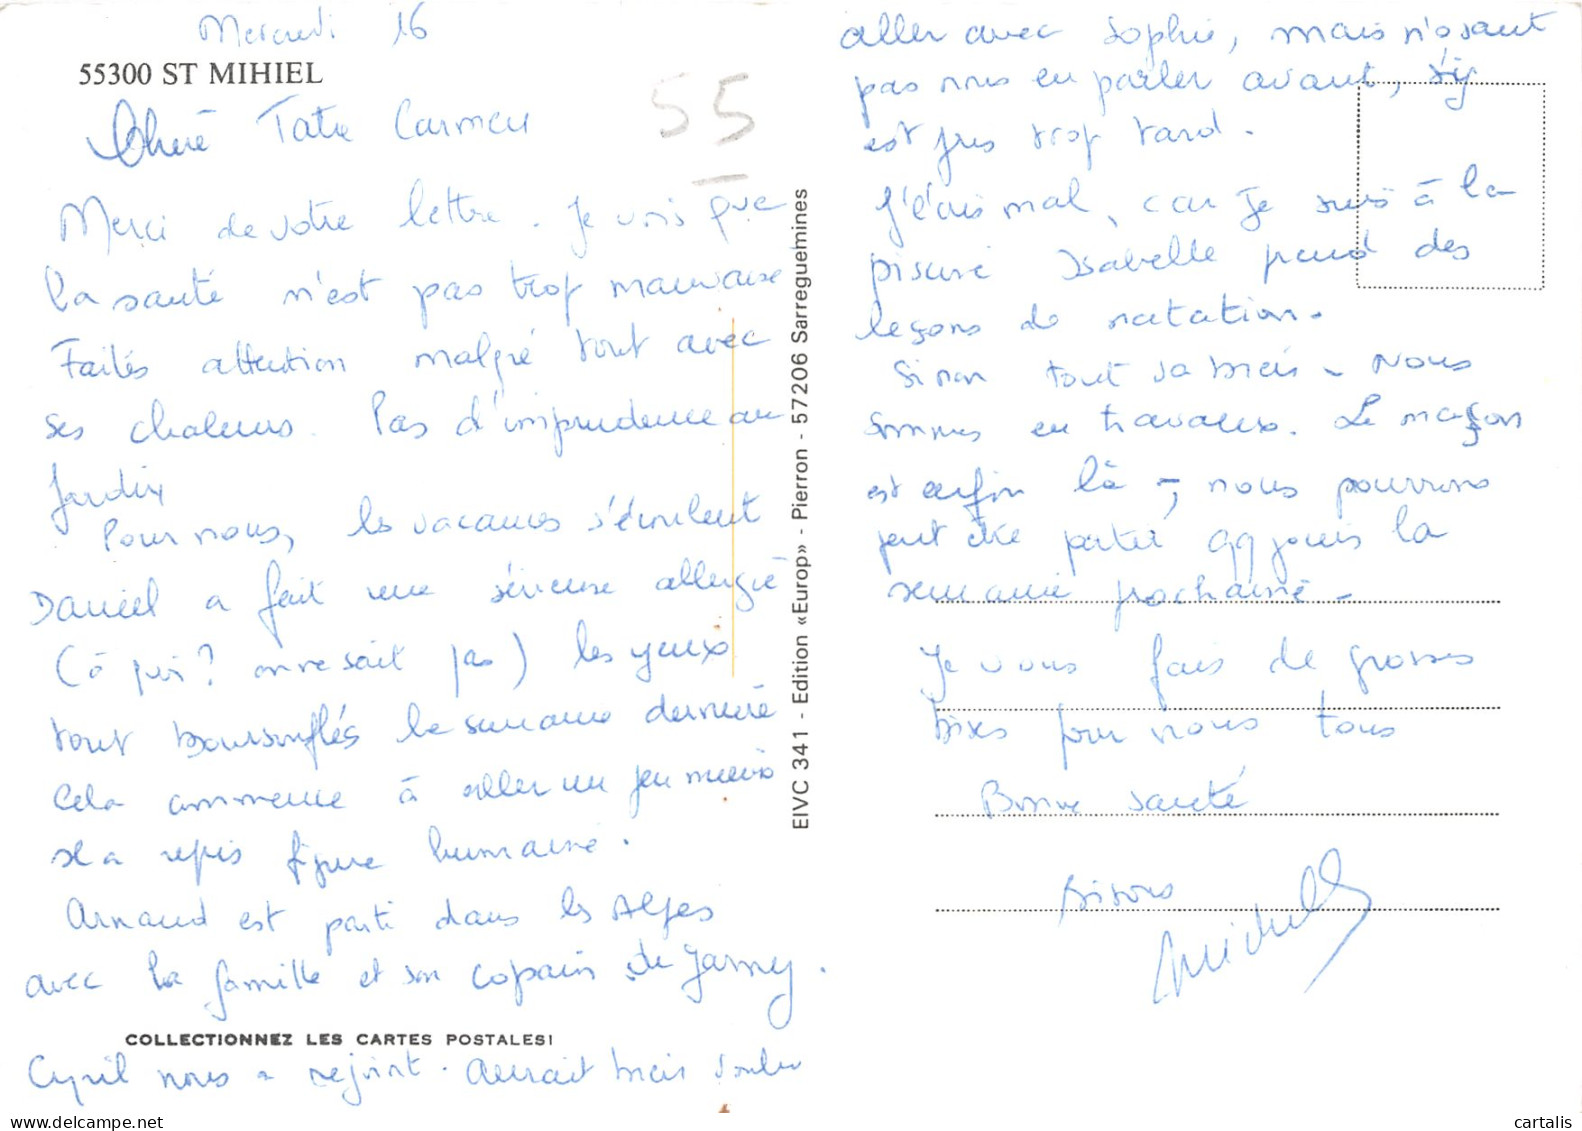 Mercredi 16
55300 ST MIHIEL
Chère Tatie Carmen
55
Merci de votre lettre. Je vois que
la santé n'est pas trop mauvaise
Faites attention malgré tout avec
ses chaleurs. Pas d'imprudence au
jardin
Pour nous, les vacances s'écoulent
Daniel a fait une sérieuse allergie
(à quoi? on ne sait pas) les yeux
tout boursouflés la semaine dernière
Cela commence à aller un peu mieux
Il a repris figure humaine.
Arnaud est parti dans les Alpes
avec la famille et son copain de Jarny.
COLLECTIONNEZ LES CARTES POSTALES!
Cyril nous a rejoint. Aurait bien voulu
EIVC 341 - Edition «Europ» - Pierron - 57206 Sarreguemines
aller avec Sophie, mais n'osant
pas nous en parler avant, s'y
est pris trop tard.
J'écris mal, car je suis à la
piscine Isabelle prend des
leçons de natation.
Sinon tout va bien - Nous
sommes en travaux. Le maçon
est enfin là -, nous pourrons
peut être partir qq jours la
semaine prochaine -
Je vous fais de grosses
bises pour nous tous
Bonne santé
Bisous
Michelle
cartalis